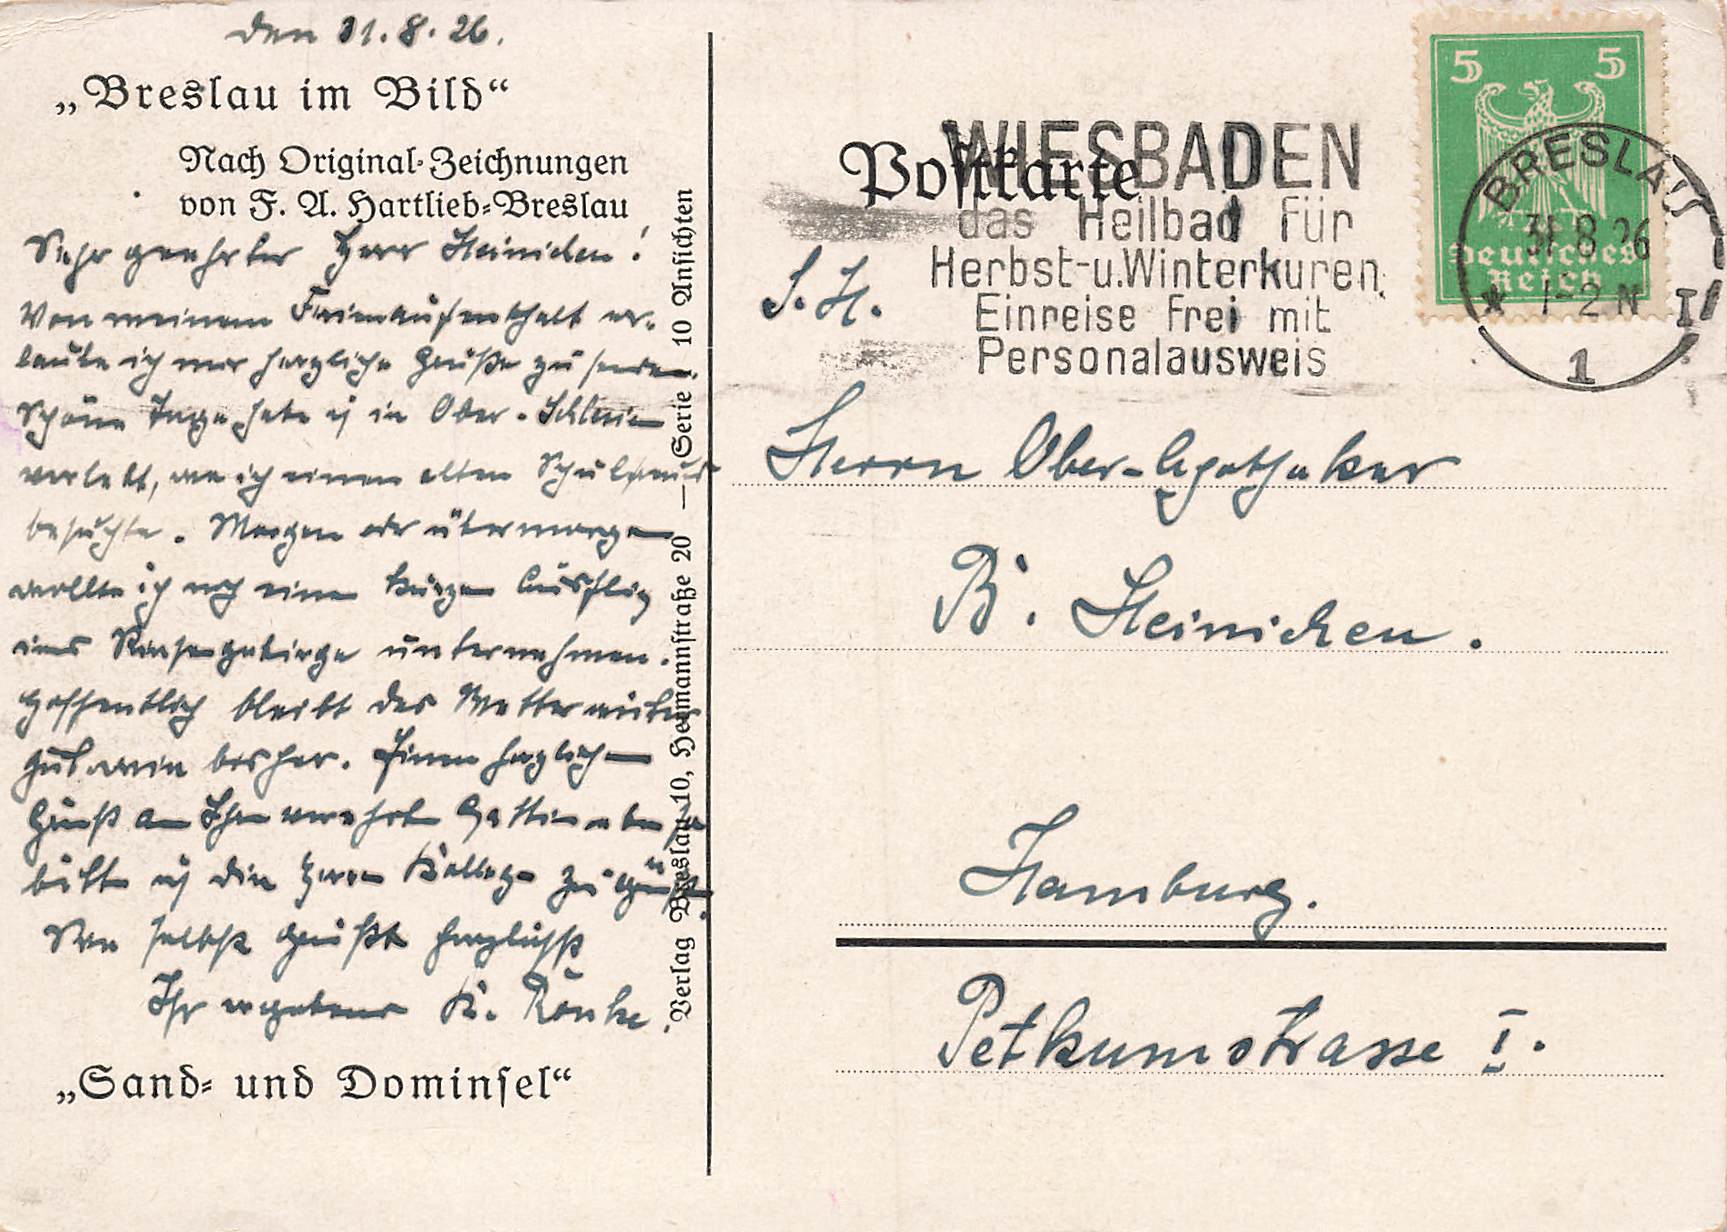 den 31.8.26.
„Breslau im Bild“
Nach Original-Zeichnungen
von F. A. Hartlieb-Breslau
Sehr geehrter Herr Heinichen!
Von meinem Ferienaufenthalt er-
laube ich mir herzliche Grüße zu senden.
Schöne Tage habe ich in Ober-Schlesien
verlebt, wo ich einen alten Schulfreund
besuchte. Morgen oder übermorgen
wollte ich noch einen kurzen Ausflug
ins Riesengebirge unternehmen.
Hoffentlich bleibt das Wetter weiter
gut wie bisher. Einen herzlichen
Gruß an Ihre verehrte Gattin ebenso
bitte ich die Herren Kollegen zu grüßen.
Sie selbst grüßt herzlichst
Ihr ergebener K. Rönke.
„Sand- und Dominsel“
Verlag Breslau 10, Hermannstraße 20 — Serie 10 Ansichten
Postkarte
WIESBADEN
das Heilbad für
Herbst-u.Winterkuren
Einreise frei mit
Personalausweis
5 5
Deutsches
Reich
BRESLAU
31.8.26
* 1-2 N I
1
S. H.
Herrn Ober-Apotheker
B. Heinichen.
Hamburg.
Petkumstrasse I.